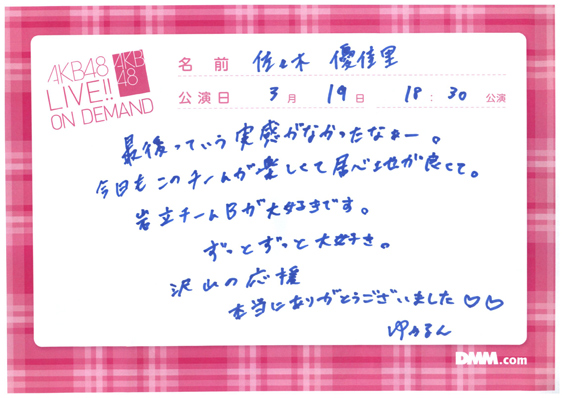 AKB48
LIVE!!
ON DEMAND
AKB
48
名前 佐々木 優佳里
公演日 3月 19日 18:30公演
最後っていう実感がなかったなぁー。
今日もこのチームが楽しくて居心地が良くて。
岩立チームBが大好きです。
ずっとずっと大好き。
沢山の応援
本当にありがとうございました♡♡
ゆかるん
DMM.com